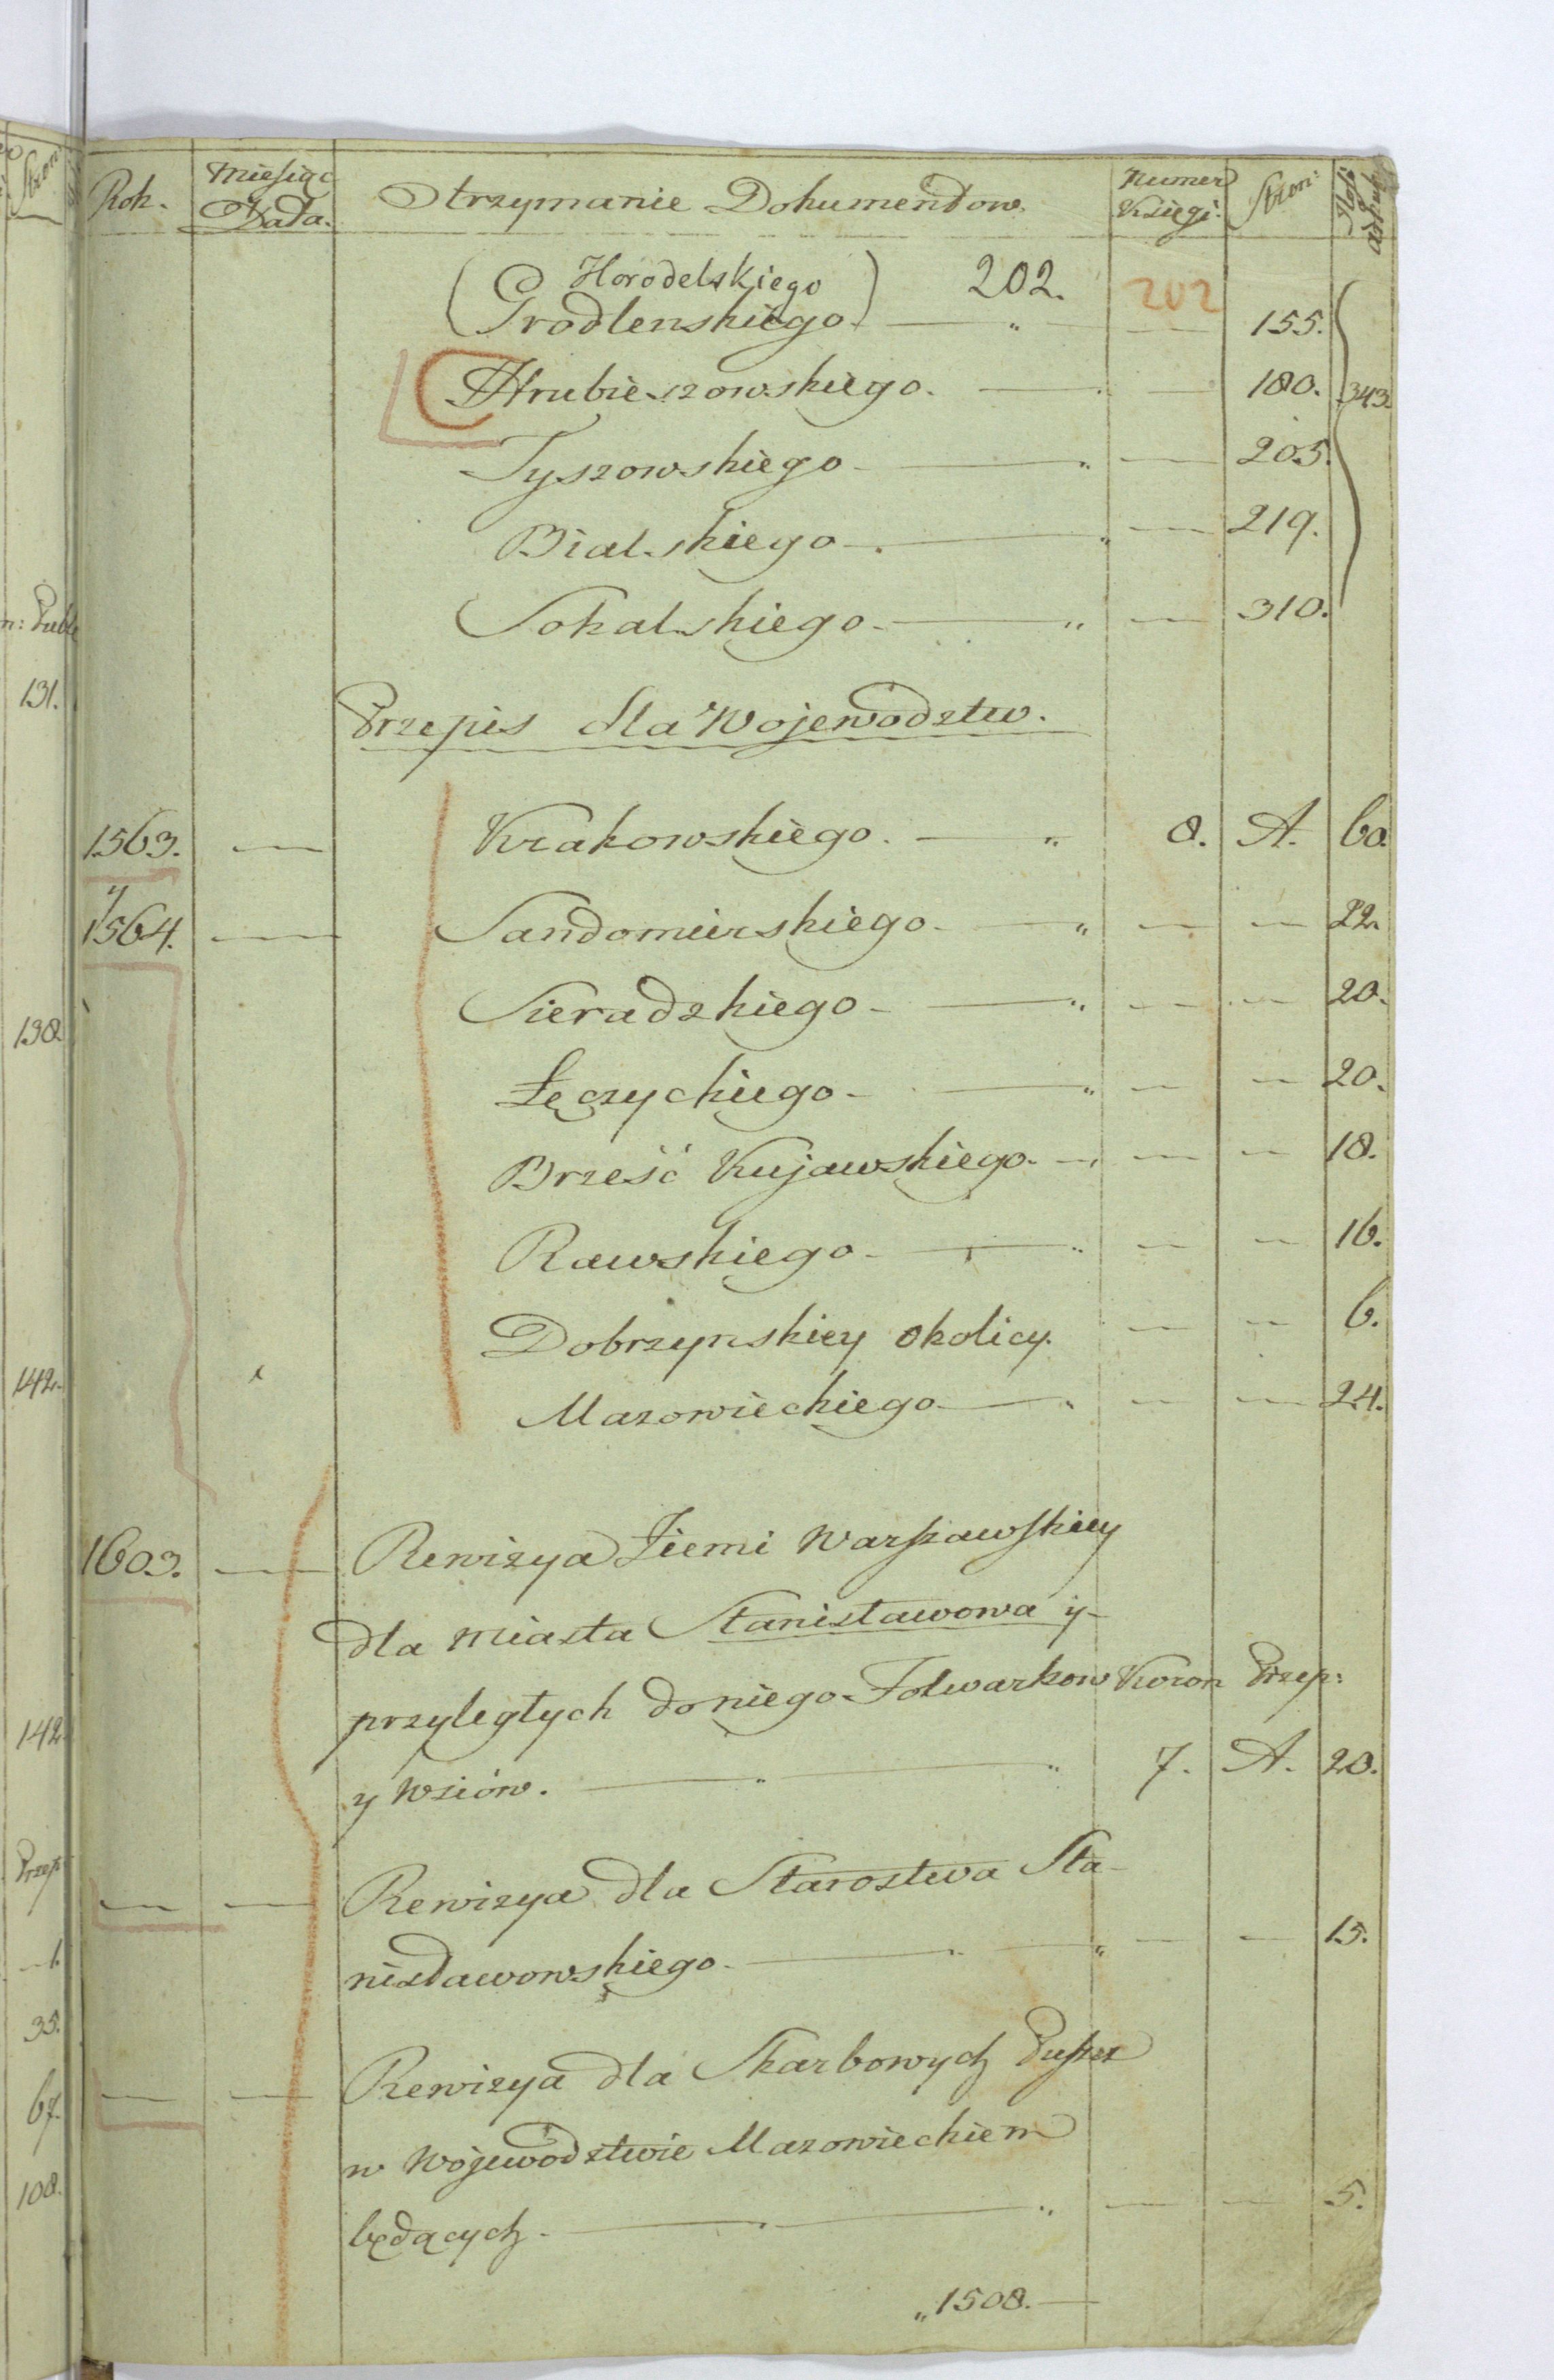 Rok. Miesiąc Data. Otrzymanie Dokumentow. Numer Księgi: Stron:
( Horodelskiego ) 202. 202
Grodlenskiego. — „ — 155.
Hrubieszowskiego. — — 180. 343.
Tyszowskiego — „ — 205.
Bialskiego — „ — 219.
Sokalskiego — „ — 310.
Przepis dla Wojewodztw.
1563. — Krakowskiego. — „ 8. A. 60.
y
1564. — Sandomierskiego — „ — — 22.
Sieradzkiego — „ — — 20.
Łęczyckiego — „ — — 20.
Brześć Kujawskiego. — „ — — 18.
Rawskiego — „ — — 16.
Dobrzynskiey okolicy. — — 6.
Mazowieckiego — „ — — 24.
1603. — Rewizya Ziemi Warszawskiey
dla miasta Stanisławowa y
przyległych do niego Folwarkow Koron Przep:
y Wsiów. — „ — „ 7. A. 20.
— — Rewizya dla Starostwa Sta-
nisławowskiego — „ — „ — — 15.
— — Rewizya dla Skarbowych Puszcz
w Wojewodztwie Mazowieckiem
będących. — „ — „ — — 5.
„1508. —
n: Publ
131.
138
142.
142
Przep
— 1.
35.
67.
108.